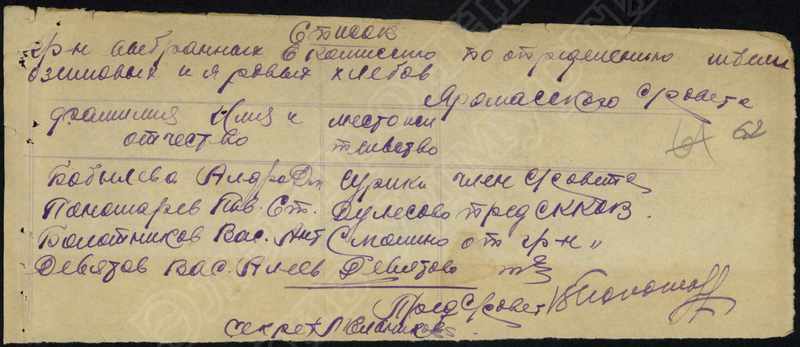 Список
гр-н выбранных в комиссию по определению
озимовых и яровых хлебов
Яромасского Совета
фамилия Имя и местожи
отчество тельство
62
Бобылева Алдра Дм Сурики член Совета
Пономарев Пав. Ст. Дулесово пред СККОВ.
Болотников Вас. Ант Смолино от гр-н "
Девятов Вас. Алеев Девятово
Пред Совет
Секрет